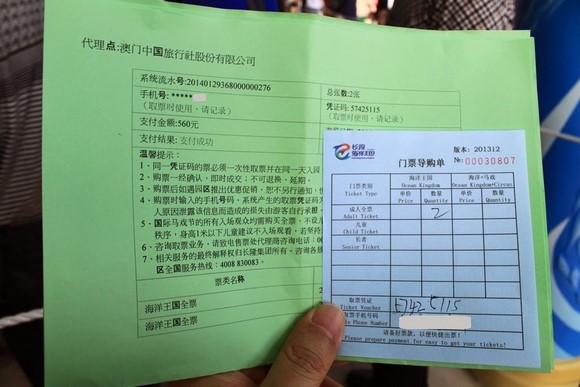 代理点:澳门中国旅行社股份有限公司
系统流水号:201401293680000000276
总张数:2张
手机号:*****
（取票时使用，请记录）
凭证码:57425115
（取票时使用，请记录）
支付金额:560元
支付结果: 支付成功
温馨提示：
1、同一凭证码的票必须一次性取票并在同一天入园
2、购票一经确认，即时成交；不可退换、延期。
3、购票后如遇园区推出优惠促销，恕不另行通知，
4、购票时输入的手机号、系统产生的取票凭证码
人原因泄露该信息而造成的损失由游客自行承担
5、国际马戏节的所有入场观众均需购买全票，不设
秩序，身高1米以下儿童建议不入场观看，若坚持
6、咨询取票业务，请致电售票处代理商咨询电话:0
7、相关服务的最终解释权归长隆集团所有。咨询
区全国服务热线：4008 830083。
票类名称
海洋王国全票
海洋王国全票
长隆
海洋王国
版本: 201312
门票导购单
№:00030807
门票类别
Ticket Type
海洋王国
Ocean Kingdom
海洋+马戏
Ocean Kingdom+Circus
单价
Price
数量
Quantity
单价
Price
数量
Quantity
成人全票
Adult Ticket
2
儿童
Child Ticket
长者
Senior Ticket
取票凭证
Ticket Voucher
57425115
取票手机号码
Phone Number
请备好票款，以便快捷出票！
Please prepare payment for easy to get your tickets!